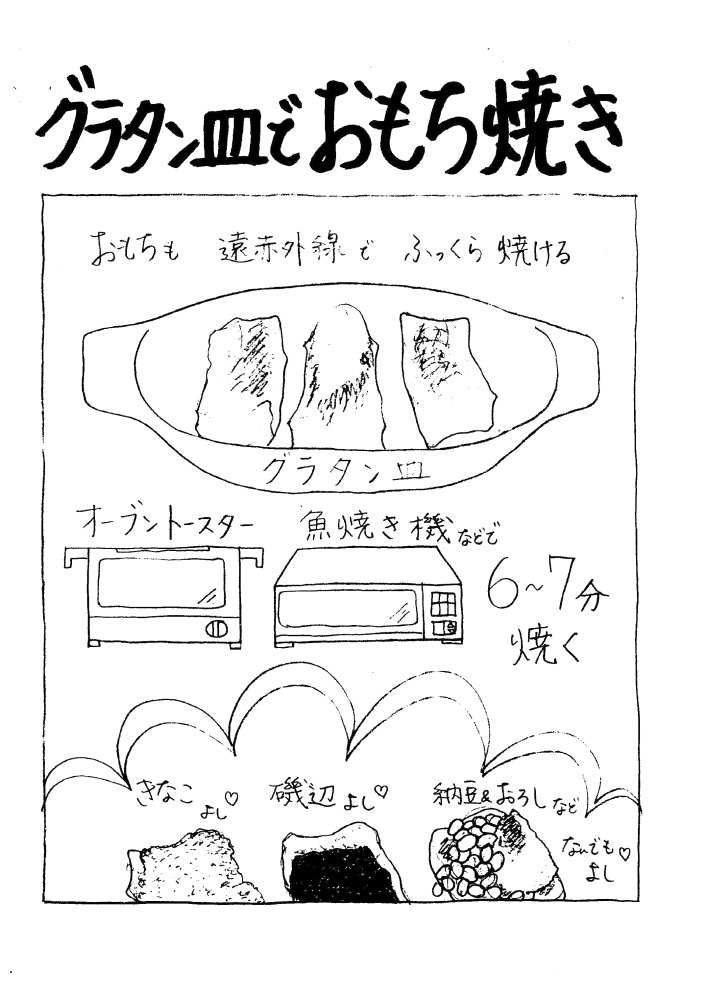 グラタン皿でおもち焼き
おもちも 遠赤外線で ふっくら焼ける
グラタン皿
オーブントースター
魚焼き機などで
6~7分
焼く
きなこ
よし♡
磯辺よし♡
納豆&おろしなど
なんでも♡
よし